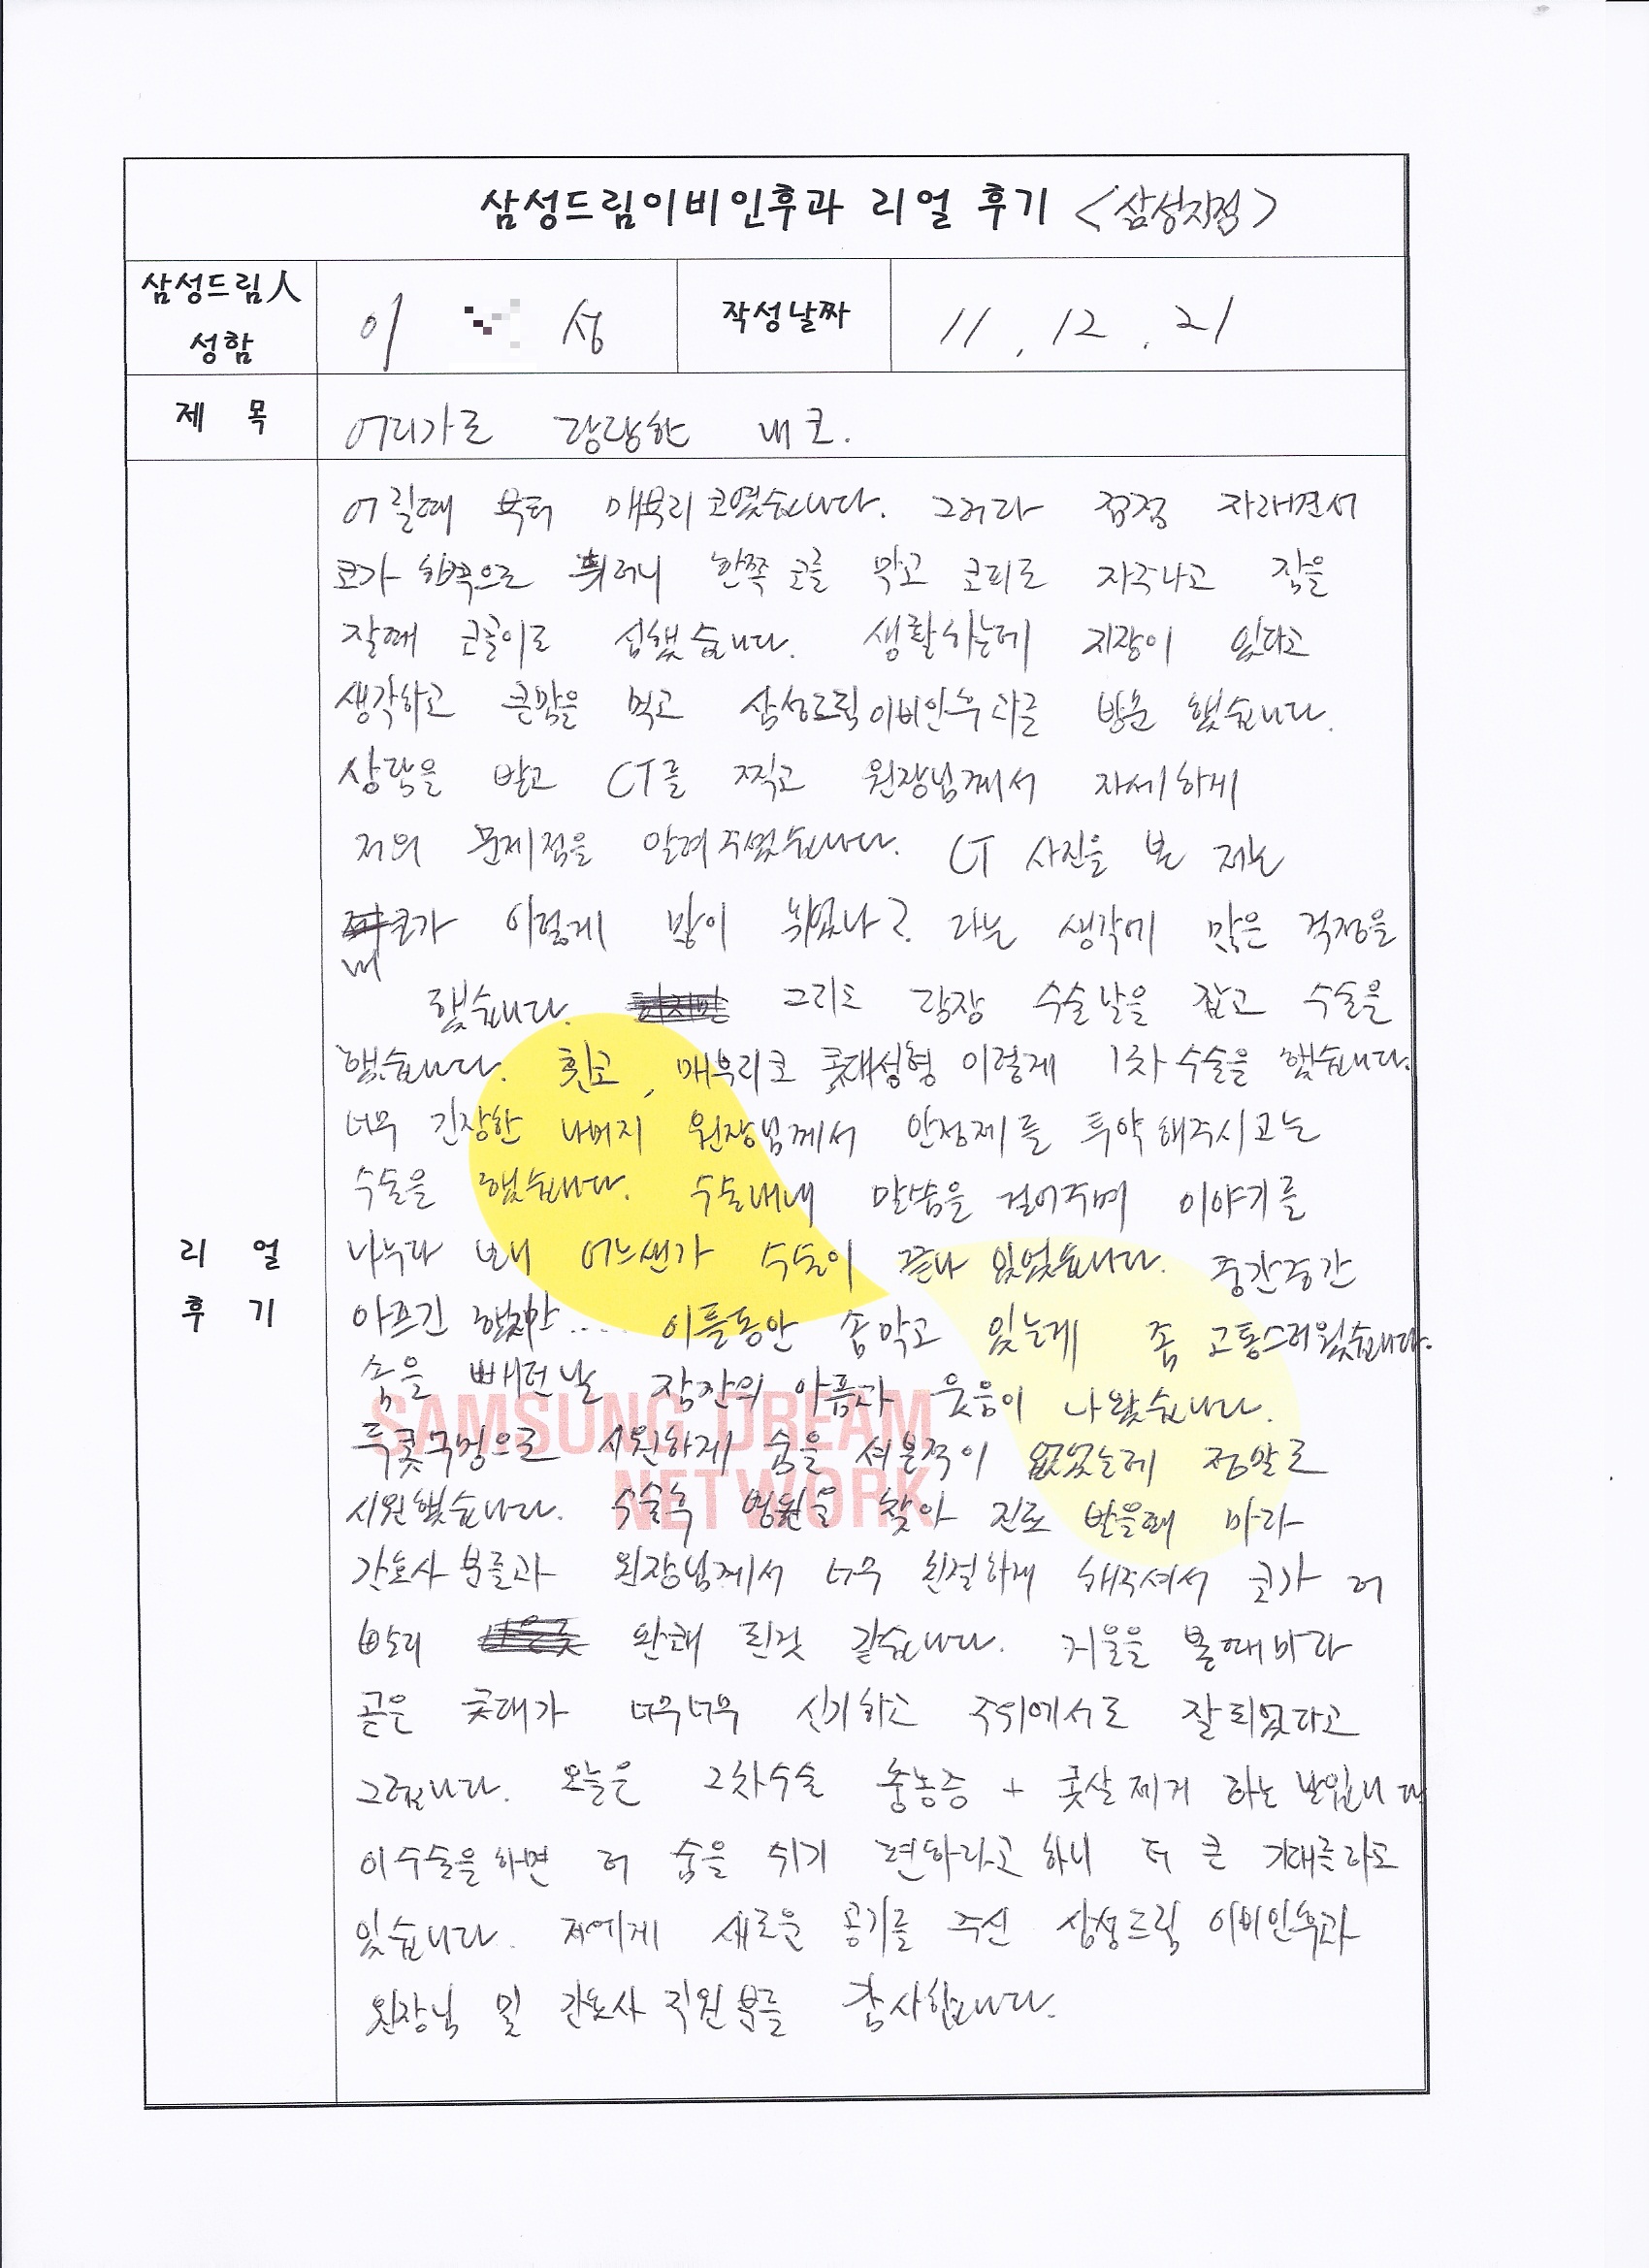 삼성드림이비인후과 리얼 후기 <삼성지점>
삼성드림人
성함
이 성
작성날짜
11. 12. 21
제 목
어디가도 당당한 내 코.
어릴때 부터 매부리코였습니다. 그러다 점점 자라면서
코가 한쪽으로 휘더니 한쪽 코를 막고 코피도 자주나고 잠을
잘때 코골이도 심했습니다. 생활하는데 지장이 있다고
생각하고 큰맘을 먹고 삼성드림이비인후과를 방문 했습니다.
상담을 받고 CT를 찍고 원장님께서 자세하게
저의 문제점을 알려주었습니다. CT 사진을 본 저는
내 코가 이렇게 많이 휘었나? 라는 생각에 많은 걱정을
했습니다. 그리고 당장 수술날을 잡고 수술을
했습니다. 휜코, 매부리코 콧대성형 이렇게 1차 수술을 했습니다.
너무 긴장한 나머지 원장님께서 안정제를 투약해주시고는
수술을 했습니다. 수술내내 말씀을 걸어주며 이야기를
나누다 보니 어느샌가 수술이 끝나 있었습니다. 중간중간
아프긴 했지만 ..... 이틀동안 솜막고 있는게 좀 고통스러웠습니다.
솜을 빼던날 잠깐의 아픔과 웃음이 나왔습니다.
두콧구멍으로 시원하게 숨을 쉬본적이 없었는데 정말로
시원했습니다. 수술후 병원을 찾아 진료 받을때 마다
간호사분들과 원장님께서 너무 친절하게 해주셔서 코가 더
빨리 완쾌 된것 같습니다. 거울을 볼때마다
곧은 콧대가 너무너무 신기하고 주위에서도 잘되었다고
그럽니다. 오늘은 2차수술 축농증 + 콧살제거 하는 날입니다
이수술을하면 더 숨을 쉬기 편하다고 하니 더 큰 기대를하고
있습니다. 저에게 새로운 공기를 주신 삼성드림 이비인후과
원장님 및 간호사 직원분들 감사합니다.
리 얼
후 기
SAMSUNG DREAM
NETWORK